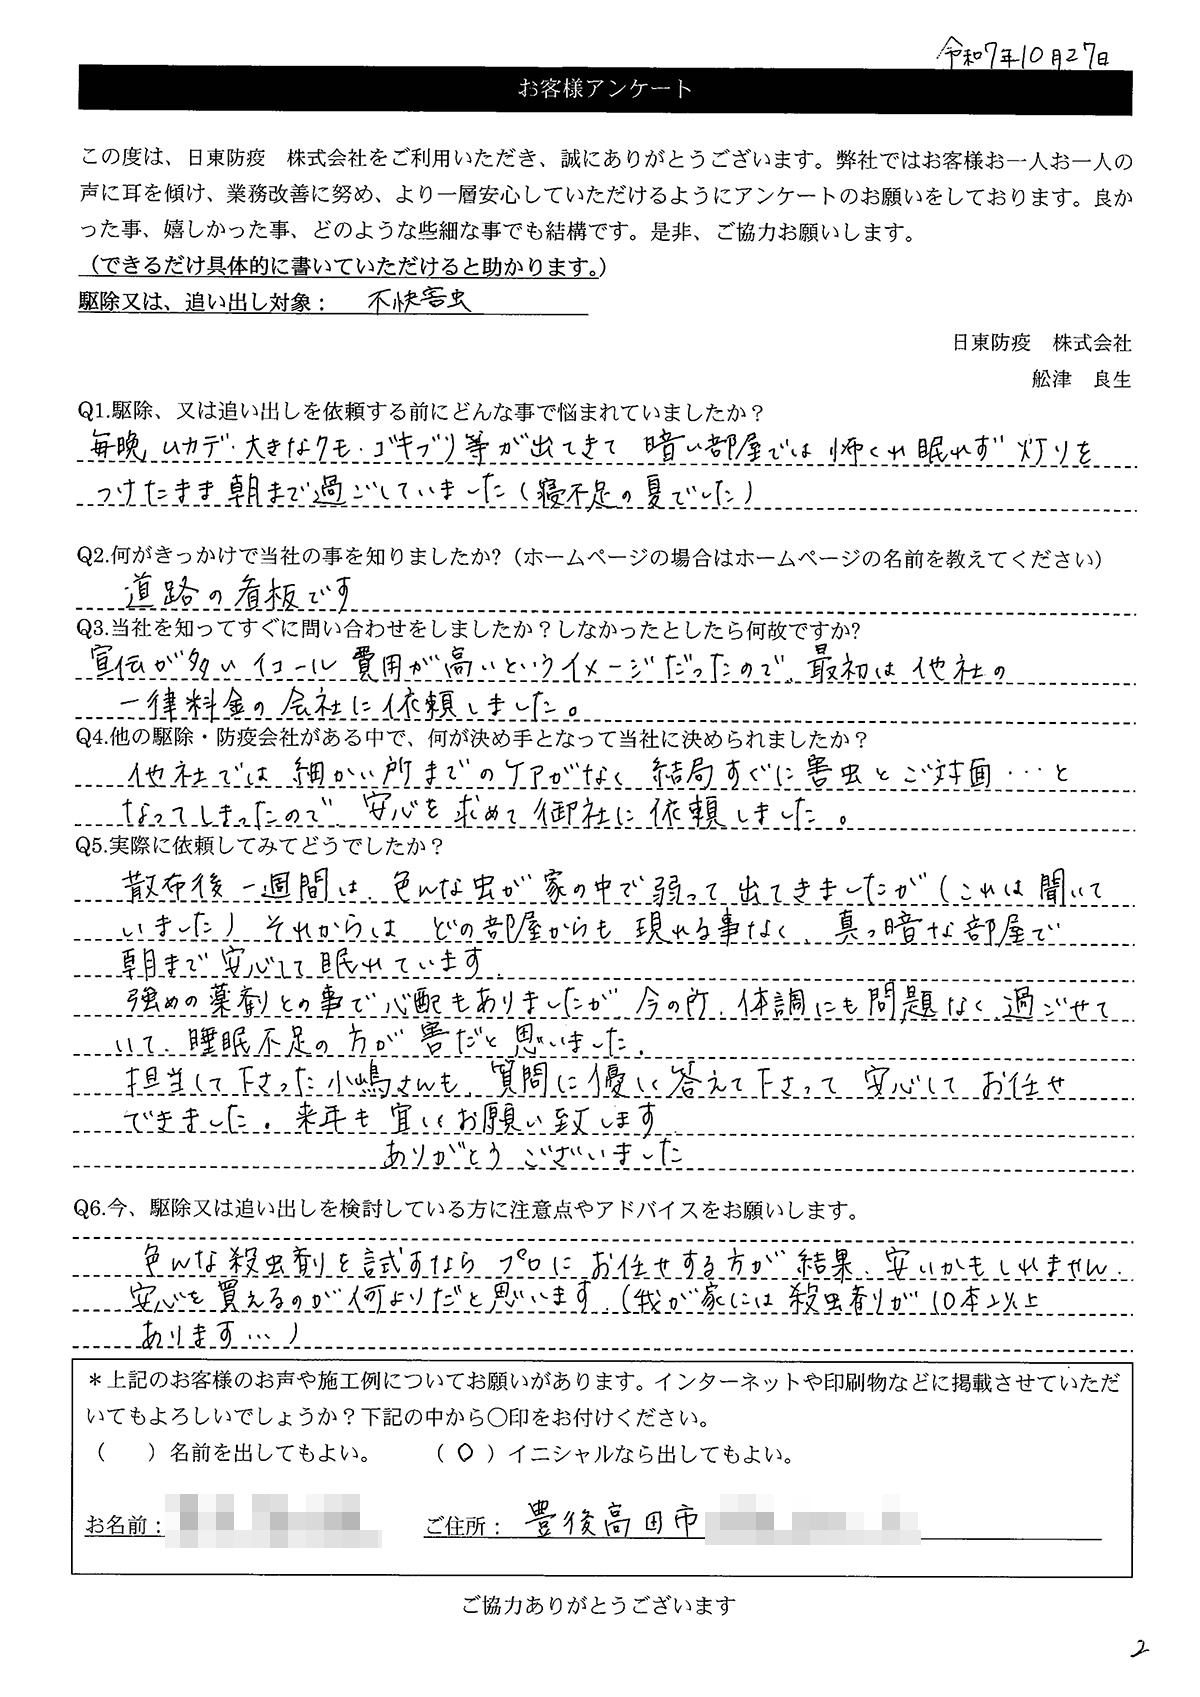 令和7年10月27日
お客様アンケート
この度は、日東防疫　株式会社をご利用いただき、誠にありがとうございます。弊社ではお客様お一人お一人の
声に耳を傾け、業務改善に努め、より一層安心していただけるようにアンケートのお願いをしております。良か
った事、嬉しかった事、どのような些細な事でも結構です。是非、ご協力お願いします。
（できるだけ具体的に書いていただけると助かります。）
駆除又は、追い出し対象：　不快害虫
日東防疫　株式会社
舩津　良生
Q1.駆除、又は追い出しを依頼する前にどんな事で悩まれていましたか？
毎晩、ムカデ・大きなクモ・ゴキブリ等が出てきて 暗い部屋では怖くれ眠れず 灯りを
つけたまま朝まで過ごしていました（寝不足の夏でした）
Q2.何がきっかけで当社の事を知りましたか?（ホームページの場合はホームページの名前を教えてください）
道路の看板です
Q3.当社を知ってすぐに問い合わせをしましたか？しなかったとしたら何故ですか?
宣伝が多い イコール 費用が高いというイメージだったので、最初は他社の
一律料金の会社に依頼しました。
Q4.他の駆除・防疫会社がある中で、何が決め手となって当社に決められましたか？
他社では細かい所までのケアがなく 結局すぐに害虫とご対面・・・と
なってしまったので、安心を求めて御社に依頼しました。
Q5.実際に依頼してみてどうでしたか？
散布後一週間は、色んな虫が家の中で弱って出てきましたが（これは聞いて
いました）それからは どの部屋からも現れる事なく、真っ暗な部屋で
朝まで安心して眠れています。
強めの薬剤との事で心配もありましたが、今の所、体調にも問題なく過ごせて
いて、睡眠不足の方が害だと思いました。
担当して下さった小嶋さんも、質問に優しく答えて下さって 安心して お任せ
できました。来年も宜しくお願い致します
ありがとう ございました
Q6.今、駆除又は追い出しを検討している方に注意点やアドバイスをお願いします。
色んな殺虫剤を試すなら プロに お任せする方が 結果、安いかもしれません。
安心を買えるのが何よりだと思います。（我が家には 殺虫剤が 10本以上
あります…）
＊上記のお客様のお声や施工例についてお願いがあります。インターネットや印刷物などに掲載させていただ
いてもよろしいでしょうか？下記の中から〇印をお付けください。
（　　）名前を出してもよい。　　（ ○ ）イニシャルなら出してもよい。
お名前：　　ご住所： 豊後高田市
ご協力ありがとうございます
2